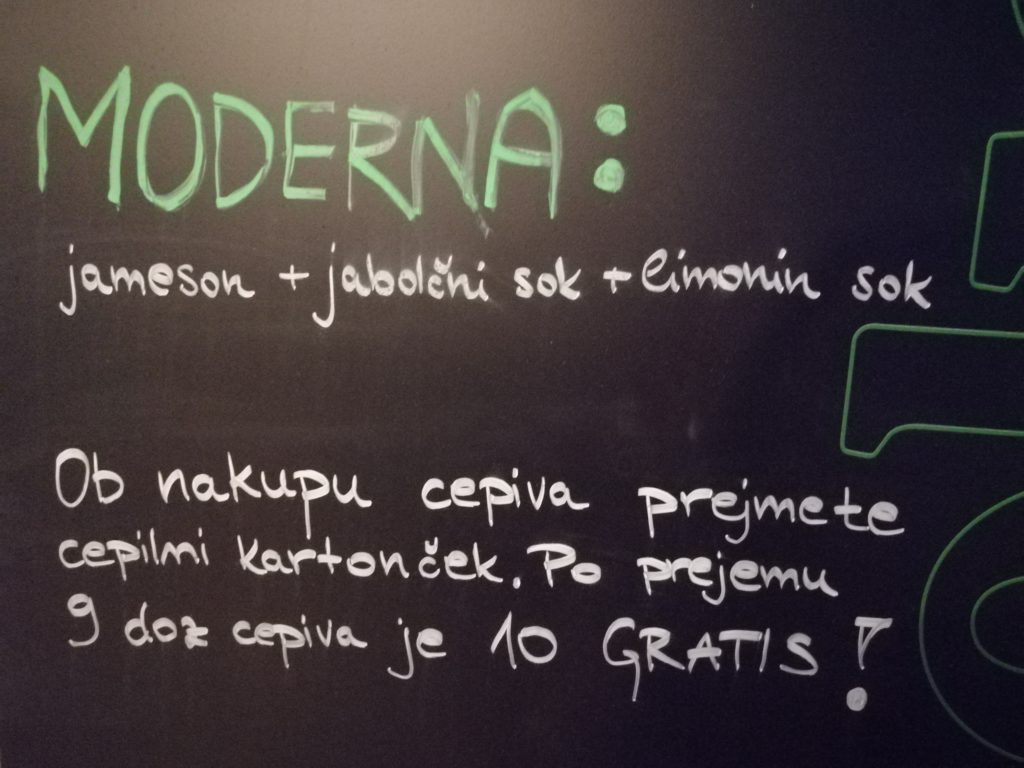 MODERNA:
jameson + jabolčni sok + limonin sok
Ob nakupu cepiva prejmete
cepilmi kartonček. Po prejemu
9 doz cepiva je 10 GRATIS!